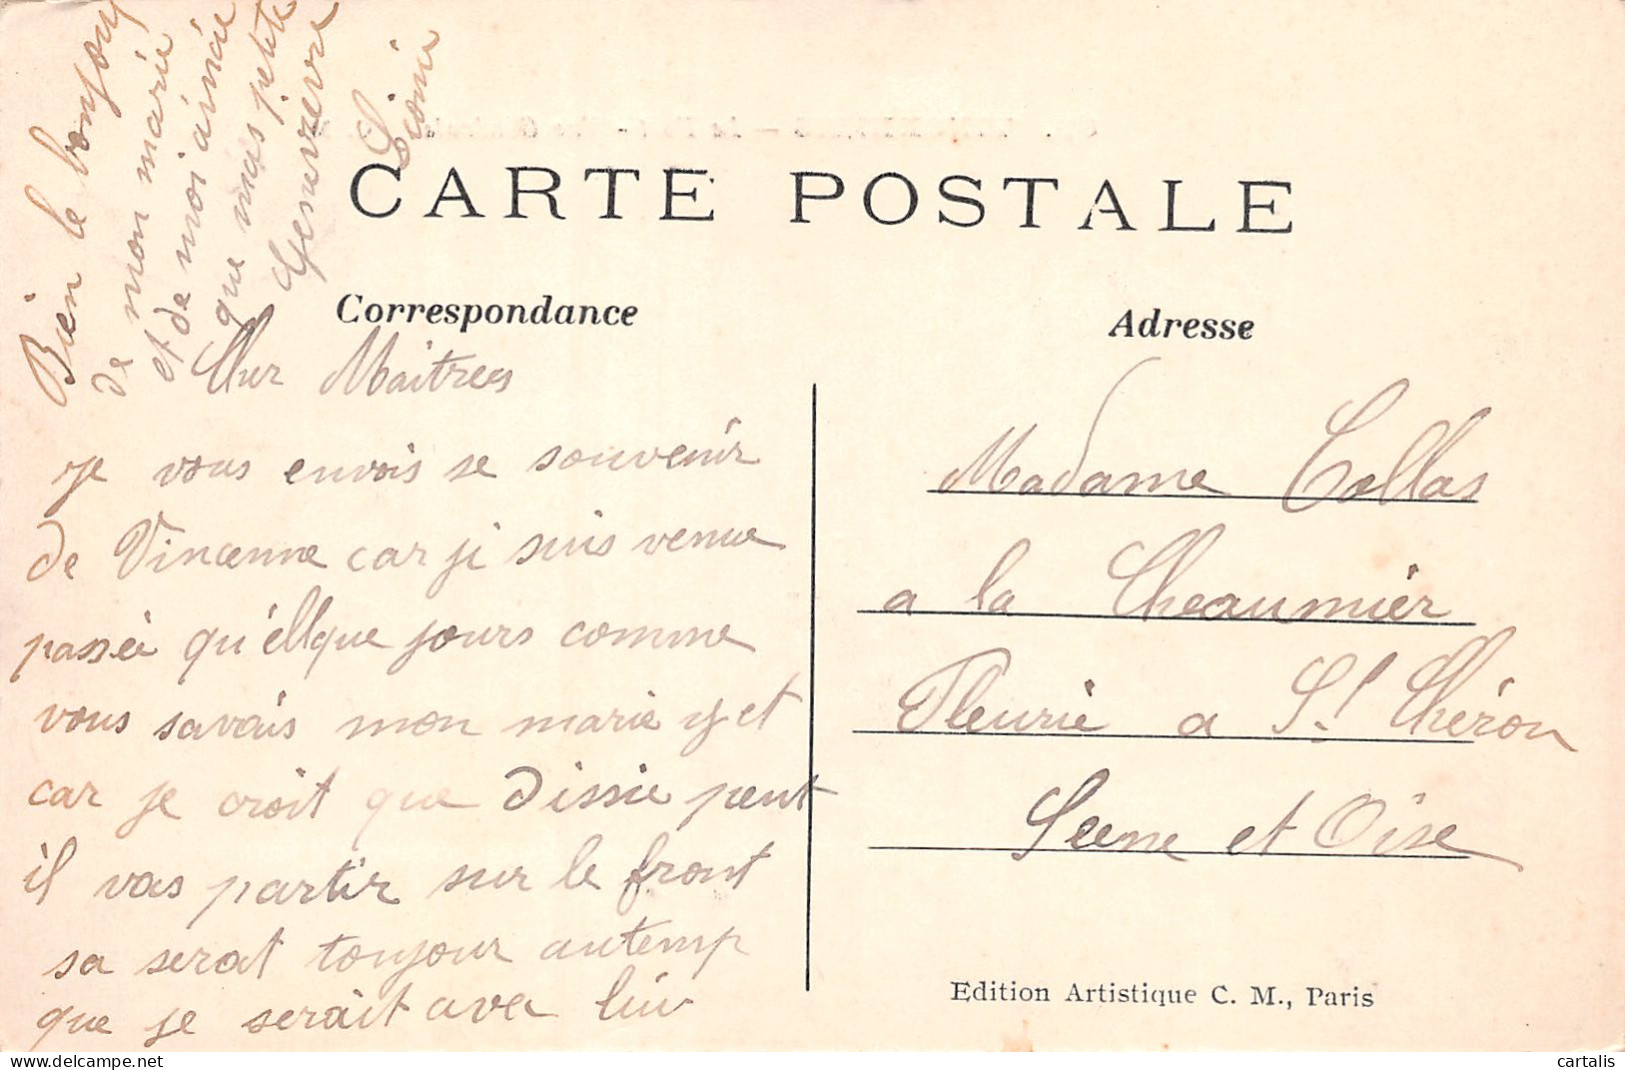 Bien le bonjour
de mon marié
et de moi ainci
que mas petite
Gesuvrevre
CARTE POSTALE
Correspondance
Adresse
Maitrees
je vous envois se souvenir
de Vincenne car ji suis venue
passéi qu'éllque jours comme
vous savais mon marie y et
car je croit que dissie peut
il vas partir sur le front
sa serat toujour autemp
que je serait avec luiv
Madame Collas
a la Cheaumiér
Fleurie a St. Chéron
Seine et Oise
Edition Artistique C. M., Paris
cartalis